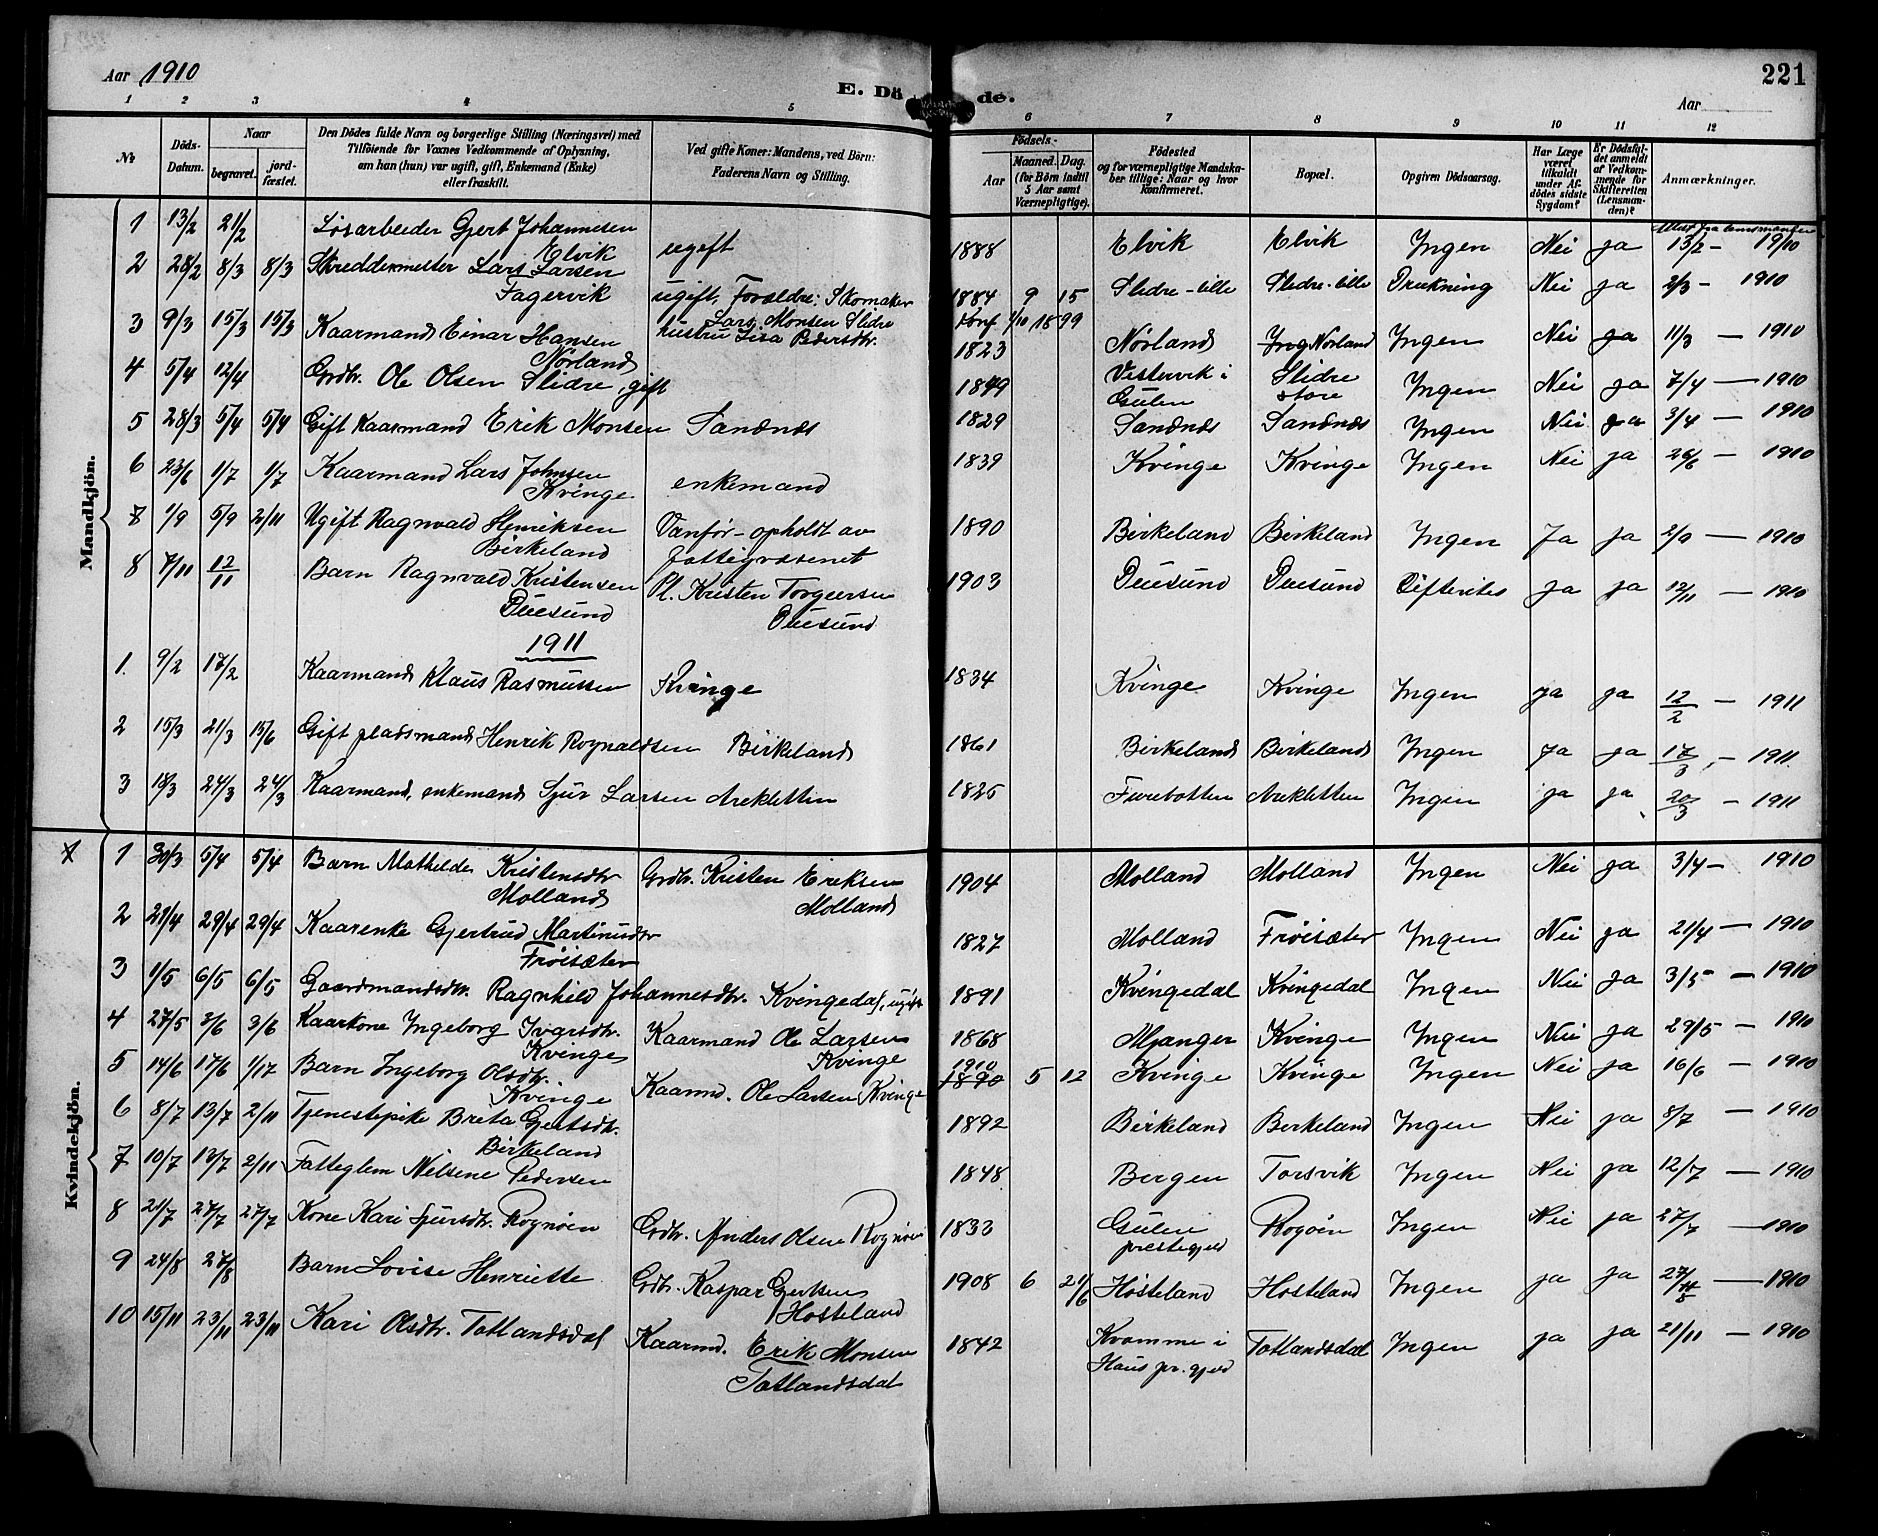 Aar 1910
E. Dö de.
221
Aar
1 2 3 4 5 6 7 8 9 10 11 12
No
Döds-Datum.
Naar
begravet.
jord-fæstet.
Den Dödes fulde Navn og borgerlige Stilling (Næringsvei) med
Tilföiende for Voxnes Vedkommende af Oplysning,
om han (hun) var ugift, gift, Enkemand (Enke)
eller fraskilt.
Ved gifte Koner: Mandens, ved Börn:
Faderens Navn og Stilling.
Födsels-
Aar
Maaned. Dag.
(for Börn indtil
5 Aar samt
Værnepligtige).
Födested
og for værnepligtige Mandska-
ber tillige: Naar og hvor
konfirmeret.
Bopæl.
Opgiven Dödsaarsag.
Har Læge
været
tilkaldt
under Af-
dödes sidste
Sygdom?
Er Dödsfal-
det anmeldt
af Vedkom-
mende for
Skifteretten
(Lensman-
den)?
Anmærkninger.
Mandkjön.
1 13/2 21/2 Løsarbeider Gjert Johannesen Elvik ugift 1888 Elvik Elvik Ingen Nei ja 13/2 - 19/10
2 28/2 8/3 8/3 Skreddermester Lars Larsen Fagervik ugift, Forældre: Skomaker Lars Monsen Slidre hustru Lisa Pedersdtr. 1884 9 15 Konf 1/10 1899 Slidre-lille Slidre-lille Drukning Nei ja 2/3 - 1910
3 9/3 15/3 15/3 Kaarmand Einar Hansen Nörland 1823 Nörland Nörland Ingen Nei ja 11/3 - 1910
4 5/4 12/4 Grdbr. Ole Olsen Slidre, gift 1849 Vestervik i Gulen Slidre store Ingen Nei ja 7/4 - 1910
5 28/3 5/4 5/4 Gift Kaarmand Erik Monsen Sandnes 1829 Sandnes Sandnes Ingen Nei ja 3/4 - 1910
6 23/6 1/7 1/7 Kaarmand Lars Johnsen Kvinge enkemand 1839 Kvinge Kvinge Ingen Nei ja 26/6 - 1910
7 1/9 5/9 2/11 Ugift Ragnvald Henriksen Birkeland Vanför - opholdt av fattigvæsenet 1890 Birkeland Birkeland Ingen Ja ja 2/9 - 1910
8 7/11 12/11 Barn Ragnvald Kristensen Duesund Pl. Kristen Torgersen Duesund 1903 Duesund Duesund Difterites ja ja 12/11 - 1910
1911
1. 9/2 17/2 Kaarmand Klaus Rasmussen Kvinge 1834 Kvinge Kvinge Ingen ja ja 12/2 - 1911
2 15/3 21/3 15/6 Gift pladsmand Henrik Rognaldsen Birkeland 1861 Birkeland Birkeland Ingen ja ja 17/3 - 1911
3 18/3 24/3 24/3 Kaarmand, enkemand Sjur Larsen Arekletten 1825 Furebotten Arekletten Ingen ja ja 20/3 - 1911
Kvindekjön.
1 30/3 5/4 5/4 Barn Mathilde Kristensdtr Molland Grdbr. Kristen Eriksen Molland 1904 Molland Molland Ingen Nei ja 3/4 - 1910
2 21/4 29/4 29/4 Kaarenke Gjertrud Martinusdtr Fröisæter 1827 Molland Fröisæter Ingen Nei ja 21/4 - 1910
3 1/5 6/5 6/5 Gaardmandsdtr. Ragnhild Johannesdtr. Kvingedal, ugift 1891 Kvingedal Kvingedal Ingen Nei ja 3/5 - 1910
4 27/5 3/6 3/6 Kaarkone Ingeborg Ivarsdtr. Kvinge Kaarmand Ole Larsen Kvinge 1868 Mjanger Kvinge Ingen Nei ja 29/5 - 1910
5 14/6 17/6 1/17 Barn Ingeborg Olsdtr. Kvinge Kaarmd. Ole Larsen Kvinge 1910 1890 5 12 Kvinge Kvinge Ingen Nei ja 16/6 - 1910
6 8/7 13/7 2/11 Tjenestepike Breta Gjertsdtr. Birkeland 1892 Birkeland Birkeland Ingen Nei ja 8/7 - 1910
7 10/7 13/7 2/11 Fattiglem Nilsene Pedersen 1848 Bergen Torsvik Ingen Nei ja 12/7 - 1910
8 21/7 27/7 27/7 Kone Kari Sjursdtr. Rognöen Grdbr. Anders Olsen Rognöen 1833 Gulen prestegjeld Rogöen Ingen Nei ja 27/7 - 1910
9 24/8 27/8 Barn Lovise Henriette Grdbr. Kaspar Gjertsen Hosteland 1908 6 21/6 Hosteland Hosteland Ingen ja ja 27/ - 1910
10 15/11 23/11 23/11 Kari Olsdtr. Totlandsdal Kaarmd. Erik Monsen Totlandsdal 1842 Kvamme i Haus pr.gjeld Totlandsdal Ingen ja ja 21/11 - 1910